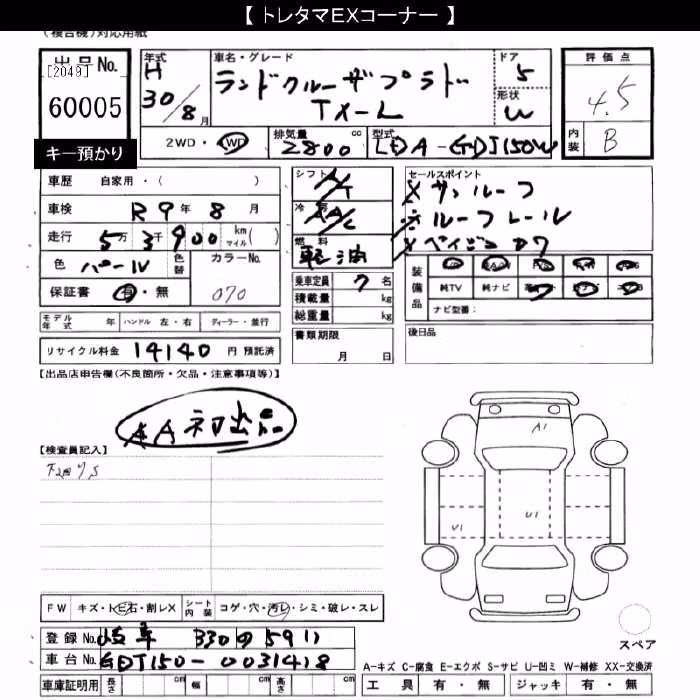 【 トレタマEXコーナー 】
(複合機)対応用紙
出品No.
[2049]
60005
キー預かり
年式 H 30/8月
車名・グレード
ランドクルーザープラド
TX-L
ドア 5
形状 W
評価点
4.5
内装 B
2WD・4WD
排気量 2800 cc
型式 LDA-GDJ150W
車歴 自家用・( )
車検 R9年 8月
走行 5万3千900 km マイル( )
色 パール
色替
カラーNo. 070
保証書 有・無
シフト AT
冷房 AAC
燃料 軽油
乗車定員 7名
積載量 kg
総重量 kg
書類期限
月 日
セールスポイント
※サンルーフ
※ルーフレール
※ベイジュカワ
装備品
純TV 純ナビ
ナビ型番:
後日品
モデル年式 年 ハンドル 左・右 ディーラー・並行
リサイクル料金 14140 円 預託済
【出品店申告欄(不良箇所・欠品・注意事項等)】
AA初出品
【検査員記入】
A1
U1
U1
FW キズ・トビ石・割レX
シート内装 コゲ・穴・汚レ・シミ・破レ・スレ
スペア
登録No. 岐阜 330 の 5911
車台No. GDJ150-0031418
A-キズ C-腐食 E-エクボ S-サビ U-凹ミ W-補修 XX-交換済
車庫証明用 長さ cm 幅 cm 高さ cm
工具 有・無 ジャッキ 有・無